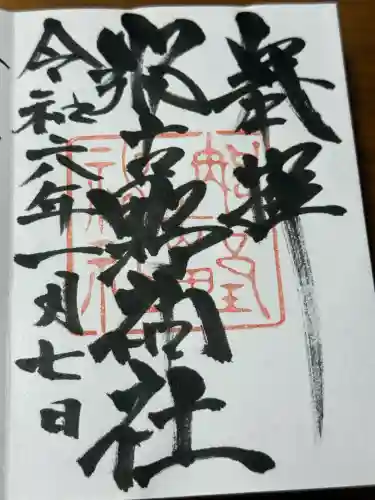 奉拝
那古野神社
令和六年一月七日